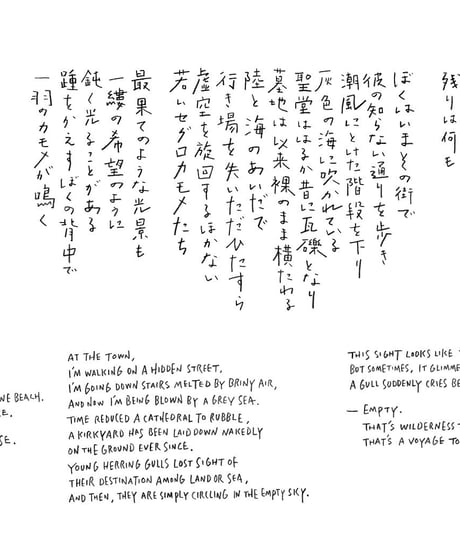 残りは何も
ぼくはいまその街で
彼の知らない通りを歩き
潮風にとけた階段を下り
灰色の海に吹かれている
聖堂ははるか昔に瓦礫となり
墓地は以来裸のまま横たわる
陸と海のあいだで
行き場を失いただひたすら
虚空を旋回するほかない
若いセグロカモメたち
最果てのような光景も
一縷の希望のように
鈍く光ることがある
踵をかえすぼくの背中で
一羽のカモメが鳴く
BEACH.
AT THE TOWN,
I'M WALKING ON A HIDDEN STREET.
I'M GOING DOWN STAIRS MELTED BY BRINY AIR,
AND NOW I'M BEING BLOWN BY A GREY SEA.
TIME REDUCED A CATHEDRAL TO RUBBLE,
A KIRKYARD HAS BEEN LAID DOWN NAKEDLY
ON THE GROUND EVER SINCE.
YOUNG HERRING GULLS LOST SIGHT OF
THEIR DESTINATION AMONG LAND OR SEA,
AND THEN, THEY ARE SIMPLY CIRCLING IN THE EMPTY SKY.
THIS SIGHT LOOKS LIKE
BUT SOMETIMES, IT GLIMME
A GULL SUDDENLY CRIES BE
— EMPTY.
THAT'S WILDERNESS
THAT'S A VOYAGE TO